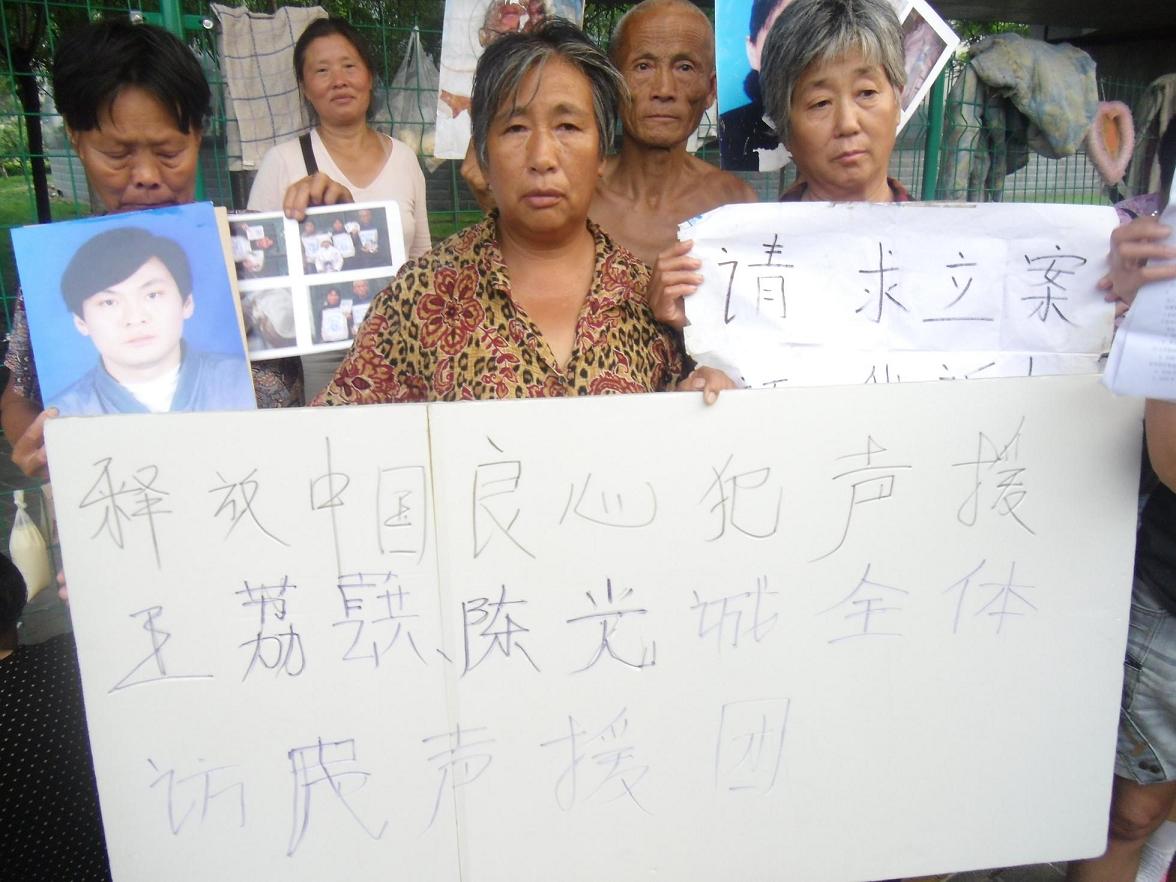 请求立案
释放中国良心犯声援
王荔蕻、陈光诚全体
访民声援团